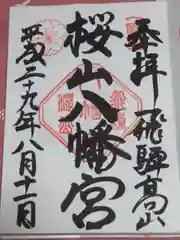 奉拝 飛騨高山
桜山八幡宮
平成二十九年八月十一日